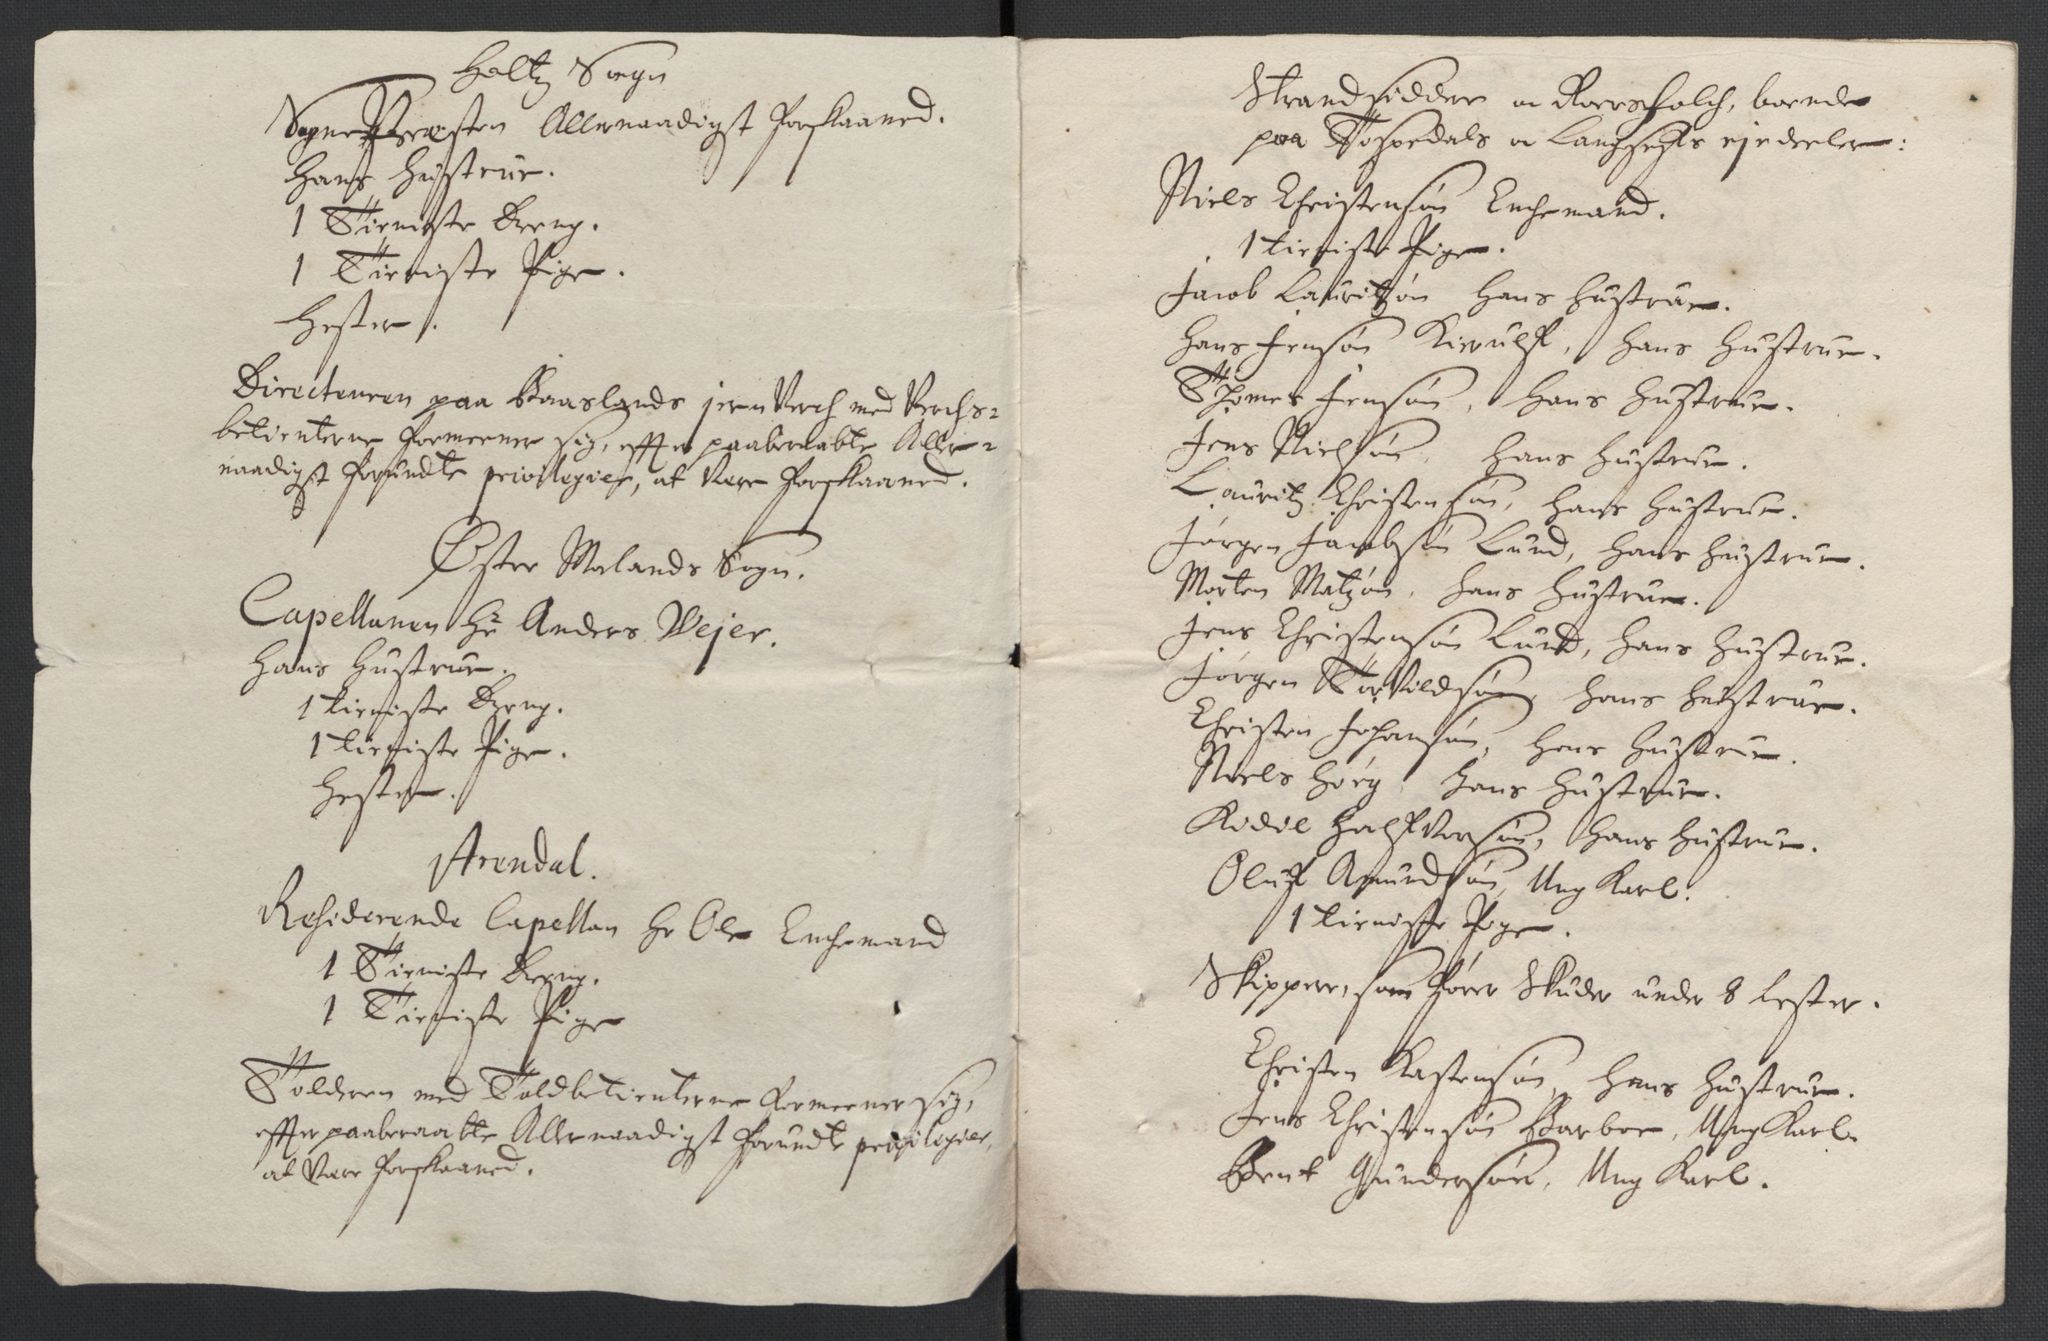 Holtz Sogn
SognePresten Allernaadigst forskaaned.
Hans Hustrue.
1 Tieniste Dreng.
1 Tieniste Pige.
Hester.
Directeuren paa Baaslands jernVerch med Verchs-
betienterne formeener sig, effter paaberaabte Aller-
naadigst forundte privilegier, at være forskaaned.
Øster Molands Sogn.
Capellanen Hr Anders Vejer.
Hans Hustrue.
1 tieniste Dreng.
1 tieniste Pige.
Hester.
Arendal.
Residerende Capellan Hr Ole Enchemand
1 Tieniste Dreng.
1 Tieniste Pige
Tolderen med Toldbetienterne formeener sig,
effter paaberaabte Allernaadigst forundte privilegier,
at være forskaaned.
Strandsidder og Roersfolch, boende
paa Tospedals og Langsehs ejedeeler:
Niels Christensøn Enchemand.
1 tieniste Pige.
Jacob Lauritzøn Hans Hustrue.
Hans Jensøn Kierulf, Hans Hustrue.
Thomes Jensøn, Hans Hustrue.
Jens Nielsøn, Hans Hustrue.
Lauritz Christensøn, Hans Hustrue.
Jørgen Jacobsøn Lund, Hans Hustrue.
Morten Matzøn, Hans Hustrue.
Jens Christensøn Lund, Hans Hustrue.
Jørgen Torkildsøn, Hans Hustrue.
Christen Johansøn, Hans Hustrue.
Niels Høeg, Hans Hustrue.
Kidil Halfvorsøn, Hans Hustrue.
Oluf Amundsøn, Ung Karl.
1 tieniste Pige.
Skippere, som fører Skuder under 8 Lester.
Christen Kastensøn, Hans Hustrue.
Jens Christensøn Barboe, Ung Karl.
Bent Gundersøn, Ung Karl.